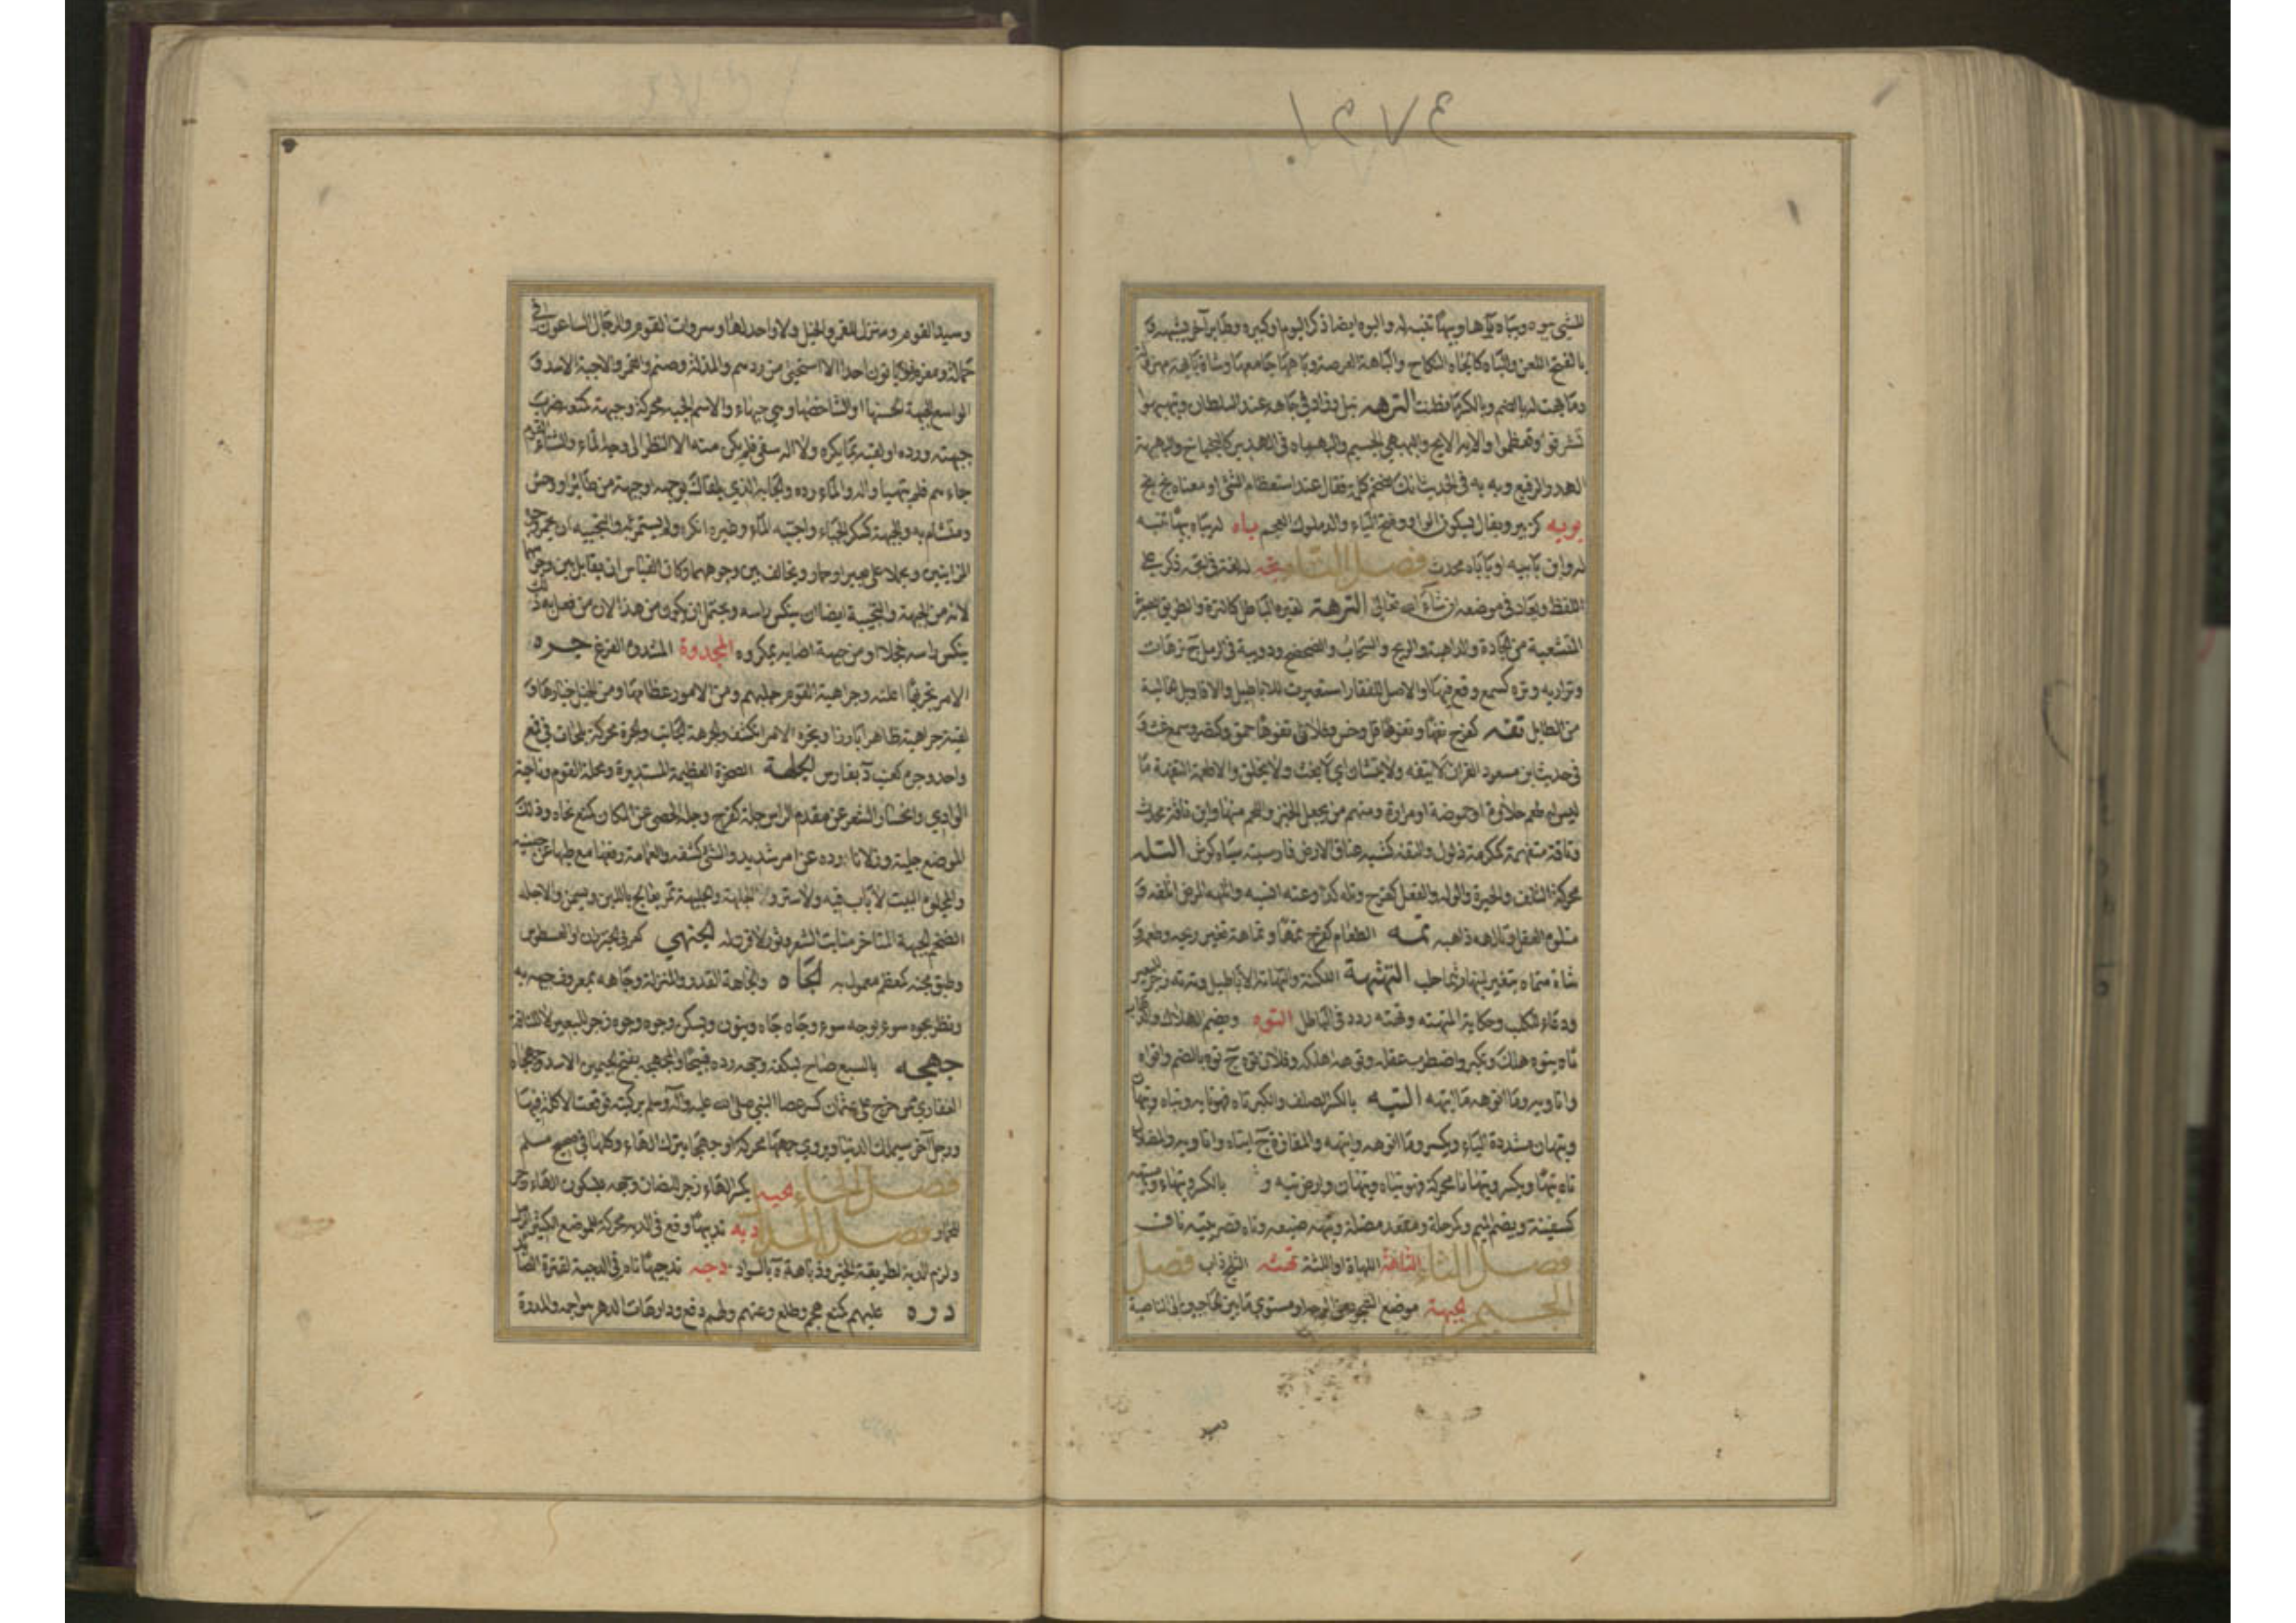 للشئ يبوه ويباه بوها وبيها تنبه له والبوه ايضا ذكر البوم او كبيره وطاير آخر يشبهه و
بالفتح اللعن والباه كالجاه النكاح والباهة العرصة وباهها جامعها وشاة
وما بهت له بالضم وبالكسر ما فطنت الترهه نبل وزاد في جاهه عند السلطان
تشرفوا وتعظموا والابه الابح والبهبهي الجسيم والبهباه في الهدير كالبخباخ والبهبهة
الهدر الرفيع وبه به في الحديث انك لضخم كلمة تقال عند استعظام الشئ او معناه بخ بخ
بويه كزبير ويقال بسكون الواو وفتح الياء والد ملوك العجم باه له يباه بيها تنبه
له وابن بابيه او باباه محدث فصل التاء تجه لغة في تجه ذكر على
اللفظ ويعاد في موضعه ان شاء الله تعالى الترهة كقبرة الباطل كالتره والطريق الصغيرة
المتشعبة من الجادة والداهية والريح والسحاب والصحصح ودويبة في الرمل ج ترهات
وتراريه وتره كسمع وقع فيها والاصل للقفار استعيرت للاباطيل والاقاويل الخالية
من الطايل تفه كفرح تفها وتفوها قل وخس وفلان تفوها حمق وكنصر وسمع غث و
في حديث ابن مسعود القرآن لا يتفه ولا يتشان اي لا يغث ولا يخلق والاطعمة التفهة ما
ليس له طعم حلاوة او حموضة او مرارة ومنهم من يجعل الخبز واللحم منها وابن تافه محدث
وناقة متفهة كمكرمة ذلول والتفه كثبه عناق الارض فارسيته سياه كوش التله
محركة التلف والحيرة والوله والفعل كفرح وتله كذا وعنه انسيه واتلهه المرض اتلفه و
متلوه العقل وتالهه ذاهبه تمه الطعام كفرح تمها وتماهة تغير ريحه وطعمه و
شاة متماه يتغير لبنها ريثما حلب التهتهة اللكنة والتهاته الاباطيل وته ته زجر للبعير
ودعاء للكلب وحكاية المتهته وتهته ردد في الباطل التوه ويضم الهلاك والذهاب
تاه يتوه هلك وتكبر واضطرب عقله وتوهه اهلكه وفلان توه ج توه بالضم واتواه
واتاويه وما اتوهه ما اتيهه التيه بالكسر الصلف والكبر تاه فهو تايه وتياه وتيهان
وتيهان مشددة الياء ويكسر وما اتوهه واتيهه والمفازة ج اتياه واتاويه والضلال
تاه تيها ويكسر وتيهانا محركة فهو تياه وتيهان وارض تيه و بالكسر وتيهاء ومتيهة
كسفينة ويضم الميم وكرحلة ومقعد مضلة وتيهه ضيعه وتاه بصره يتيه تاف
فصل الثاء الثاهة اللهاة او اللثة ثهثه الثلج ذاب فصل
الجيم الجبهة موضع السجود من الوجه او مستوي ما بين الحاجبين الى الناصية
وسيد القوم ومنزل للقمر والخيل ولا واحد لها وسروات القوم والرجال الساعون في
حمالة ومغرم فلا ياتون احدا الا استحيى من ردهم والمذلة وصنم والقمر والاجبه الاسد و
الواسع الجبهة الحسنها او الشاخصها وهي جبهاء والاسم الجبه محركة وجبهه كمنعه ضرب
جبهته ورده او لقيه بما يكره والماء سقى فلم يكن منه الا النظر الى وجه الماء والشتاء القوم
جاءهم فلم يتهيأوا له والماء ورده والجابه الذي يلقاك بوجهه او جبهته من طائر او وحش
ويتشاءم به والجبهة كسكر الجباء واجتبه الماء وغيره انكره ولم يستمرئه والتجبيه ان يحمر وجوه
الزانيين ويحملا على بعير او حمار ويخالف بين وجوههما وكان القياس ان يقابل بين وجوههما
لانه من الجبهة والتجبيه ايضا ان ينكس راسه ويحتمل ان يكون من هذا لان من فعل به ذلك
ينكس راسه خجلا او من جبهه اصابه بمكروه المجدوه المشدوه الفزع جره
الامر تجريها اعلنه وجراهية القوم جلبتهم ومن الامور عظامها ومن الخيل خيارها و
لقيته جراهية ظاهرا بارزا وتجره الامر انكشف والجرهة الجانب والجرة محركة بلحات في قمع
واحد وجره كعنب د بفارس الجلهة الصخرة العظيمة المستديرة ومحلة القوم وناحية
الوادي وانحسار الشعر عن مقدم الراس جله كفرح وجله الحصى عن المكان كمنع نحاه وذلك
الموضع جليهة وفلانا رده عن امر شديد والشئ كشفه والعمامة رفعها مع طيها عن جبينه
والمجلوه البيت لا باب فيه ولا ستر والجلهة والجليهة تمر يعالج باللبن ويسمن والاجله
الضخم الجبهة المتاخر منابت الشعر وثور لا قرن له الجنهي كعرني الخيزران او العسطوس
وطبق مجنه كمعظم معمول به الجاه والجاهة القدر والمنزلة وجاهه بمعروف جبهه به
ونظر بجوه سوء بوجه سوء وجاه جاه وينون ويسكن وجوه وجوه زجر للبعير لا للناقة
جهجه بالسبع صاح ليكفه وجهه رده قبيحا والمجهجه بفتح الجيمين الاسد وجهجاه
الغفاري ممن خرج على عثمان كسر عصا النبي صلى الله عليه وآله وسلم بركبته فوقعت الاكلة فيها
ورجل آخر سيملك الدنيا ويروى جهجها محركة او جهجا بترك الهاء وكلها في صحيح مسلم
فصل الحاء حيه بكسر الهاء زجر للضان وحه بسكون الهاء زجر
للحمار فصل الدال دبه تدبيها وقع في الدبه محركة للموضع الكثير الرمل
ولزم الدبه لطريقة الخير ودباهة ة بالسواد دجه تدجيها نام في الدجية لقترة الصائد
دره عليهم كمنع هجم وطلع وعنهم ولهم دفع ودارهات الدهر هواجمه والمدره